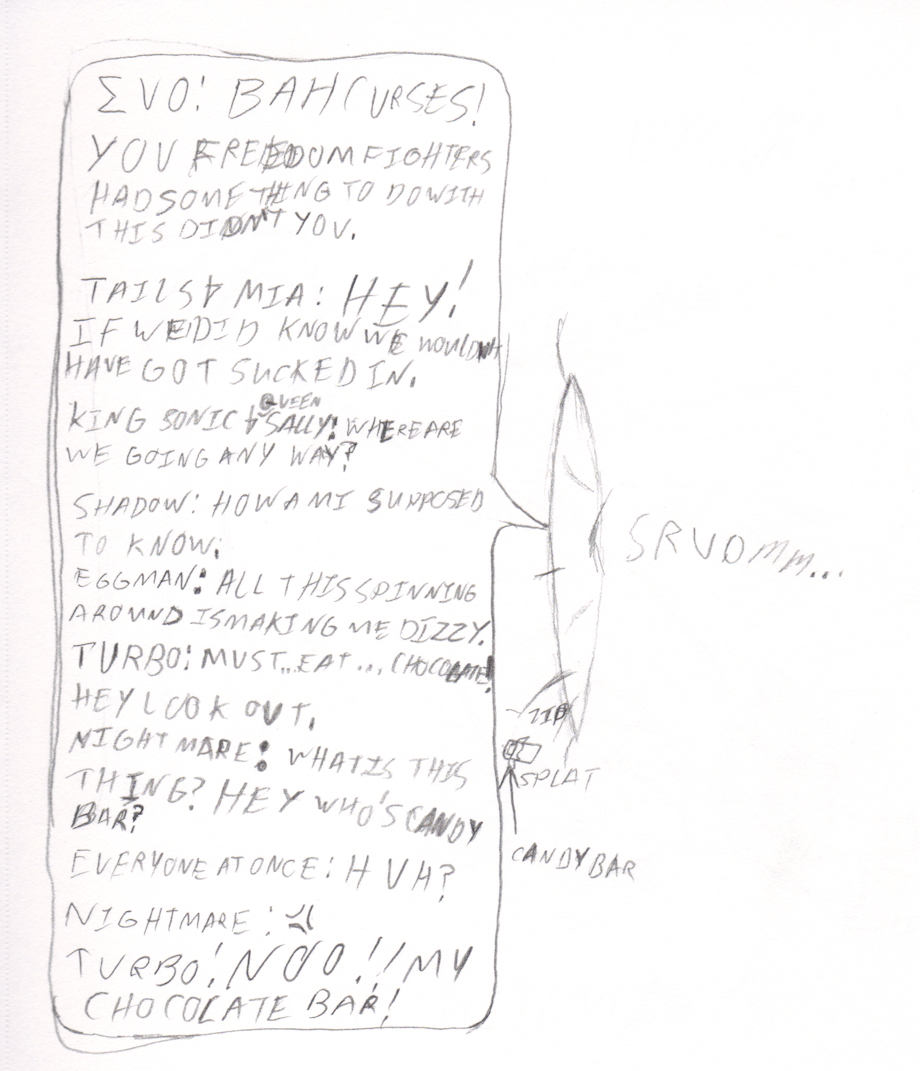 ΣVO: BAH CURSES!
YOU FREEDOM FIGHTERS
HAD SOMETHING TO DO WITH
THIS DIDN'T YOU.
TAILS & MIA: HEY!
IF WE DID KNOW WE WOULDN'T
HAVE GOT SUCKED IN.
QUEEN
KING SONIC & SALLY: WHERE ARE
WE GOING ANY WAY?
SHADOW: HOW AM I SUPPOSED
TO KNOW.
EGGMAN: ALL THIS SPINNING
AROUND IS MAKING ME DIZZY.
TURBO: MUST...EAT... CHOCOLATE!
HEY LOOK OUT.
NIGHTMARE: WHAT IS THIS
THING? HEY WHO'S CANDY
BAR?
EVERYONE AT ONCE: HUH?
NIGHTMARE:
TURBO: NOO!! MY
CHOCOLATE BAR!
SRVOMM...
ZIP
SPLAT
CANDY BAR